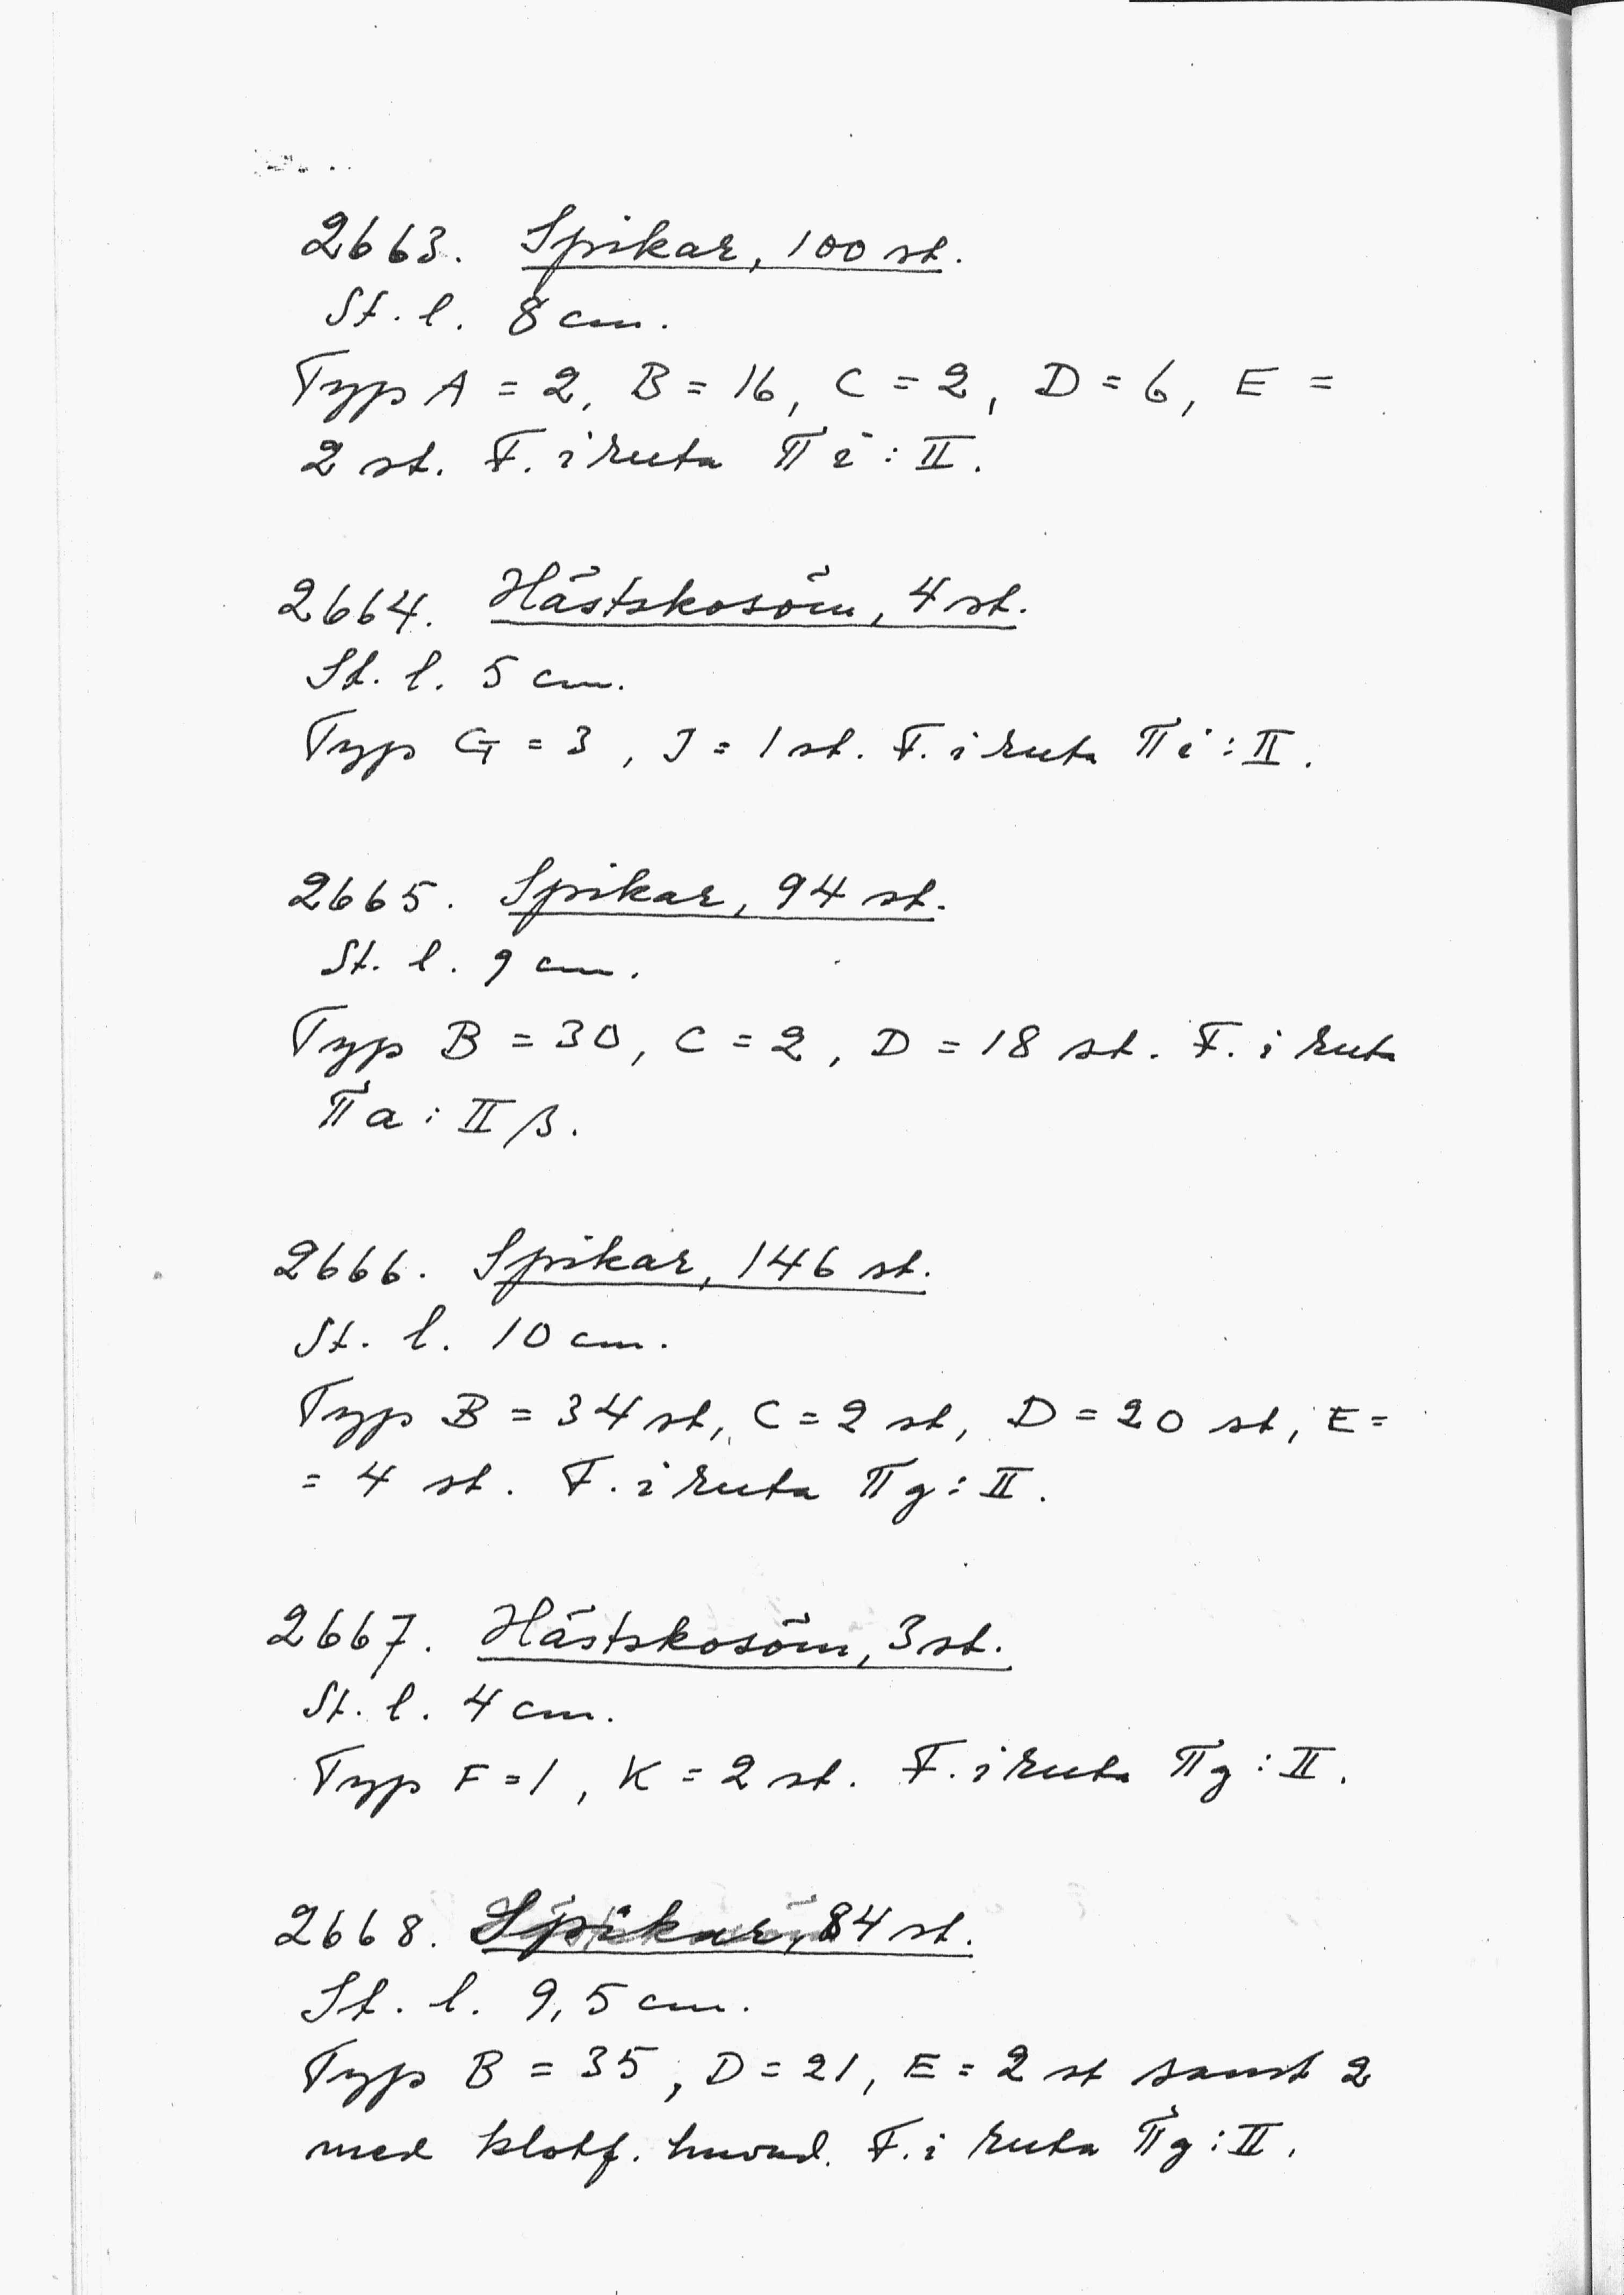 2663. Spikar, 100 st.
St. l. 8 cm.
Typ A = 2, B = 16, C = 2, D = 6, E =
2 st. F. i ruta Πi : II.
2664. Hästskosöm, 4 st.
St. l. 5 cm.
Typ G = 3, J = 1 st. F. i ruta Πi : II.
2665. Spikar, 94 st.
St. l. 9 cm.
Typ B = 30, C = 2, D = 18 st. F. i ruta
Πa : II β.
2666. Spikar, 146 st.
St. l. 10 cm.
Typ B = 34 st, C = 2 st, D = 20 st, E =
= 4 st. F. i ruta Πg : II.
2667. Hästskosöm, 3 st.
St. l. 4 cm.
Typ F = 1, K = 2 st. F. i ruta Πg : II.
2668. Spikar, 84 st.
St. l. 9,5 cm.
Typ B = 35, D = 21, E = 2 st samt 2
med klotf. huvud. F. i ruta Πg : II.